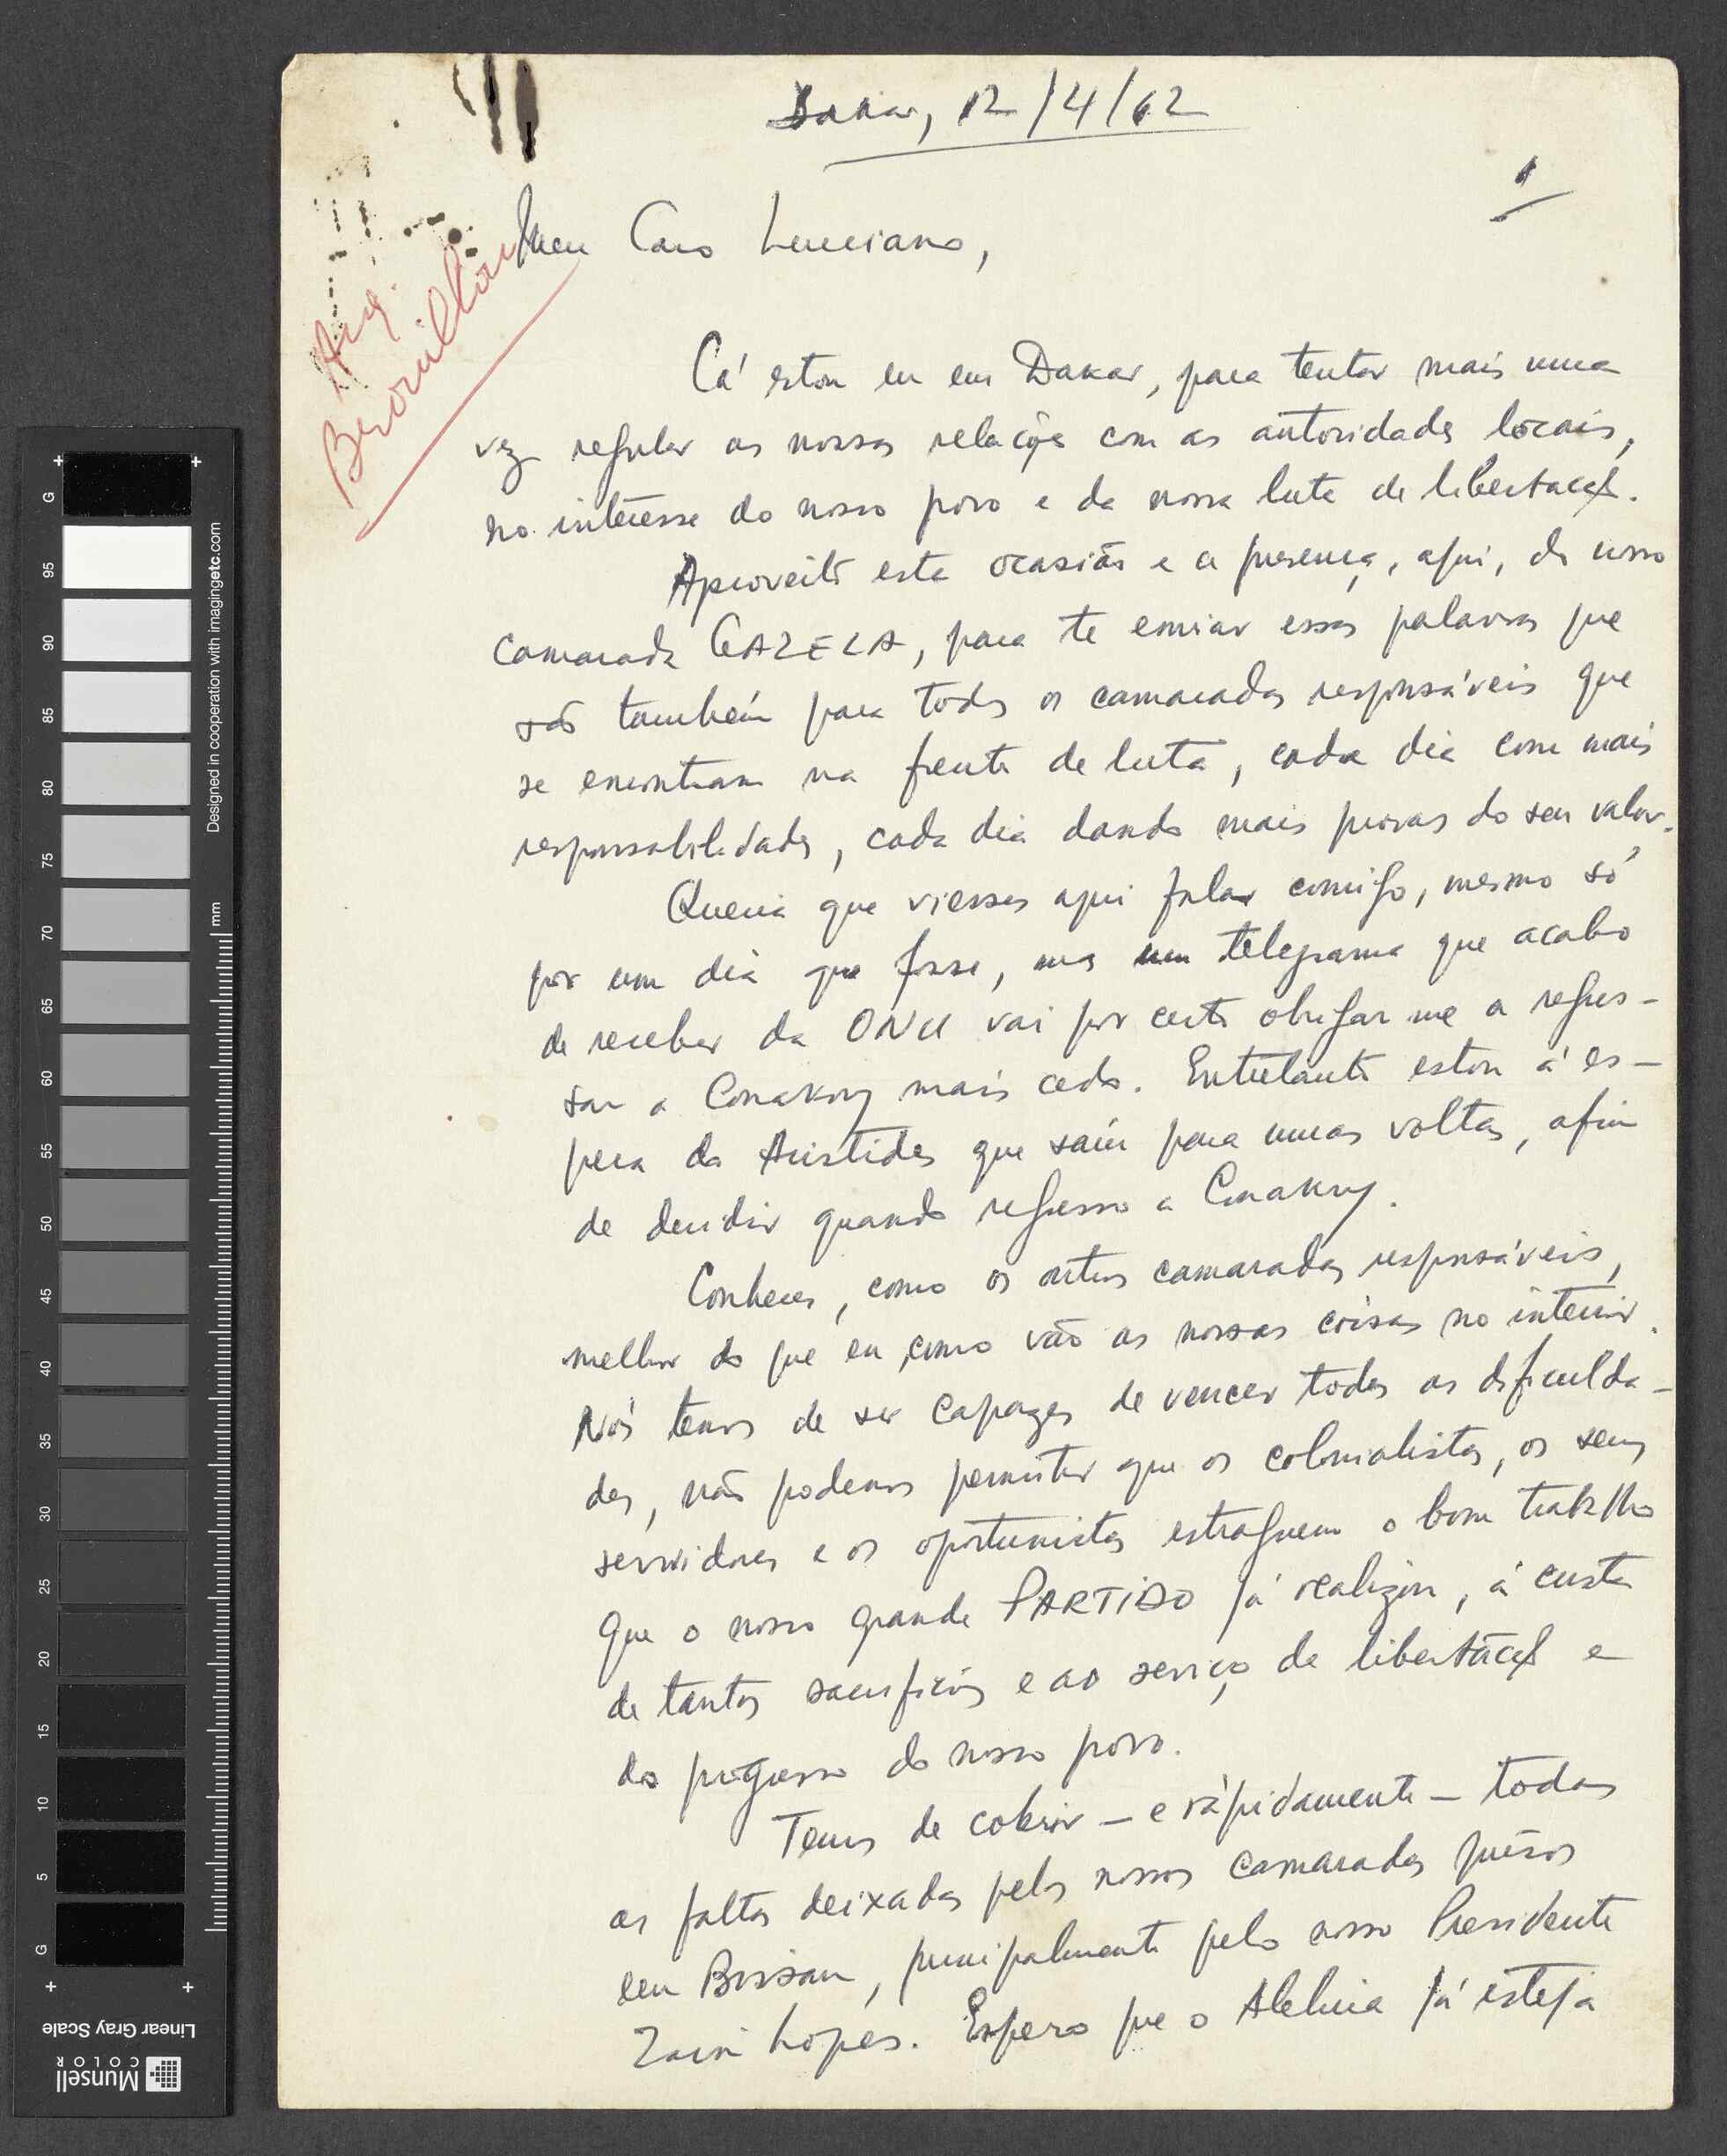 Dakar, 12/4/62
1
Arq.
Brouillon
Meu Caro Luciano,
Cá estou eu em Dakar, para tentar mais uma
vez regular as nossas relações com as autoridades locais,
no interêsse do nosso povo e da nossa luta de libertação.
Aproveito esta ocasião e a presença, aqui, do nosso
camarada GAZELA, para te enviar essas palavras que
são também para todos os camaradas responsáveis que
se encontram na frente de luta, cada dia com mais
responsabilidades, cada dia dando mais provas do seu valor.
Queria que viesses aqui falar comigo, mesmo só
por um dia que fosse, mas um telegrama que acabo
de receber da ONU vai por certo obrigar-me a regres-
sar a Conakry mais cedo. Entretanto estou á es-
pera do Aristides que saíu para umas voltas, afim
de decidir quando regresso a Conakry.
Conheces, como os outros camaradas responsáveis,
melhor do que eu, como vão as nossas coisas no interior.
Nós temos de ser capazes de vencer todas as dificulda-
des, não podemos permitir que os colonialistas, os seus
servidores e os oportunistas estraguem o bom trabalho
que o nosso grande PARTIDO já realizou, á custa
de tantos sacrifícios e ao serviço da libertação e
do progresso do nosso povo.
Temos de cobrir - e ràpidamente - todas
as faltas deixadas pelos nossos camaradas prêsos
em Bissau, principalmente pelo nosso Presidente
Zain Lopes. Espero que o Aleluia já esteja
Designed in cooperation with imagingetc.com
mm
G
95
90
85
80
75
70
65
60
55
50
45
40
35
30
25
20
15
10
5
G
Linear Gray Scale
Munsell
COLOR